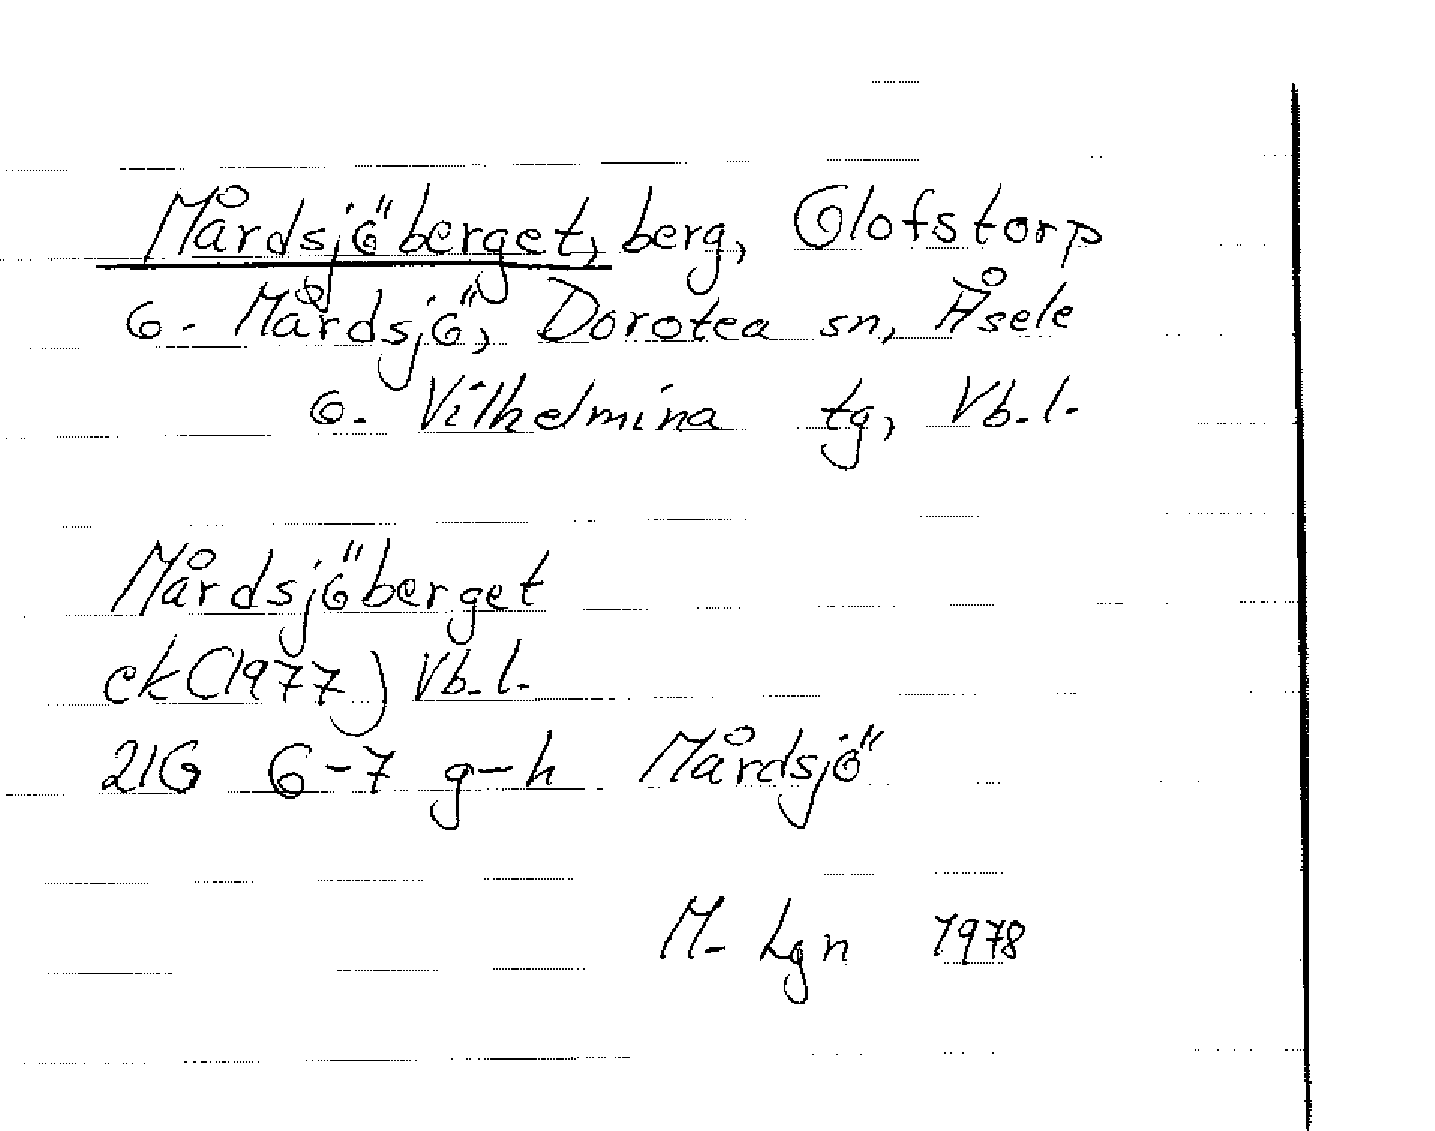 Mårdsjöberget, berg, Olofstorp
o. Mårdsjö, Dorotea sn, Åsele
o. Vilhelmina tg, Vb. l.
Mårdsjöberget
ek (1977) Vb. l.
21G 6-7 g-h Mårdsjö
M. Lgn 1978